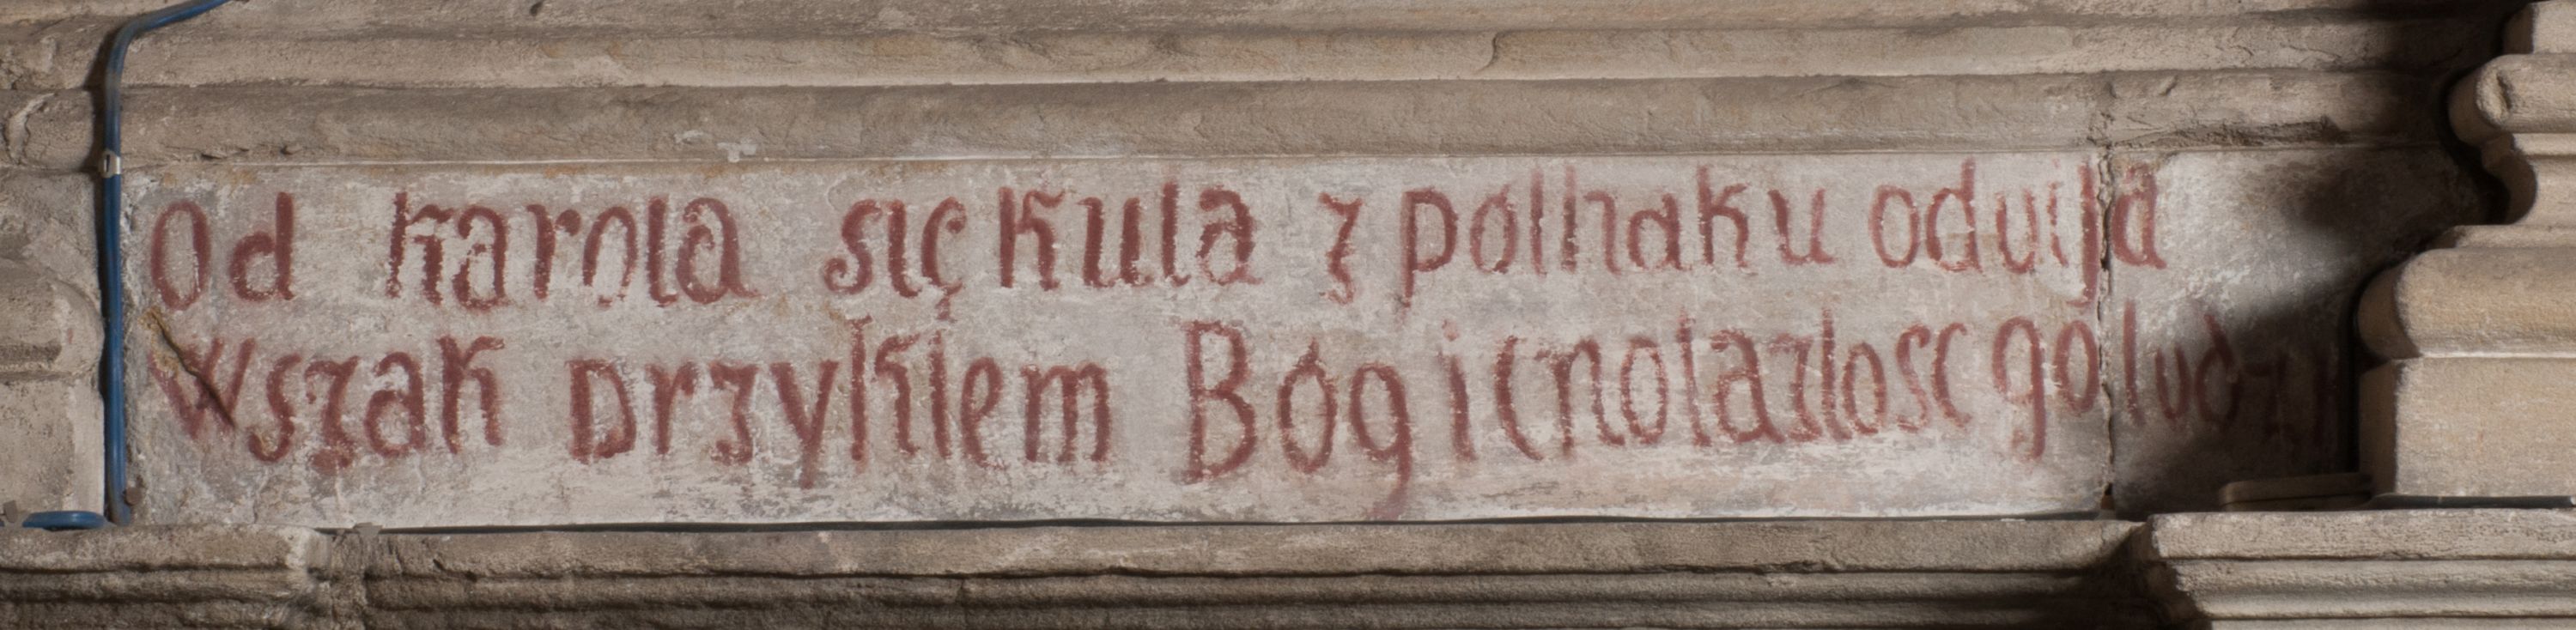 Od karola się kula z polhaku oduija
Wszak przykłem Bóg i cnota złosc go ludzi